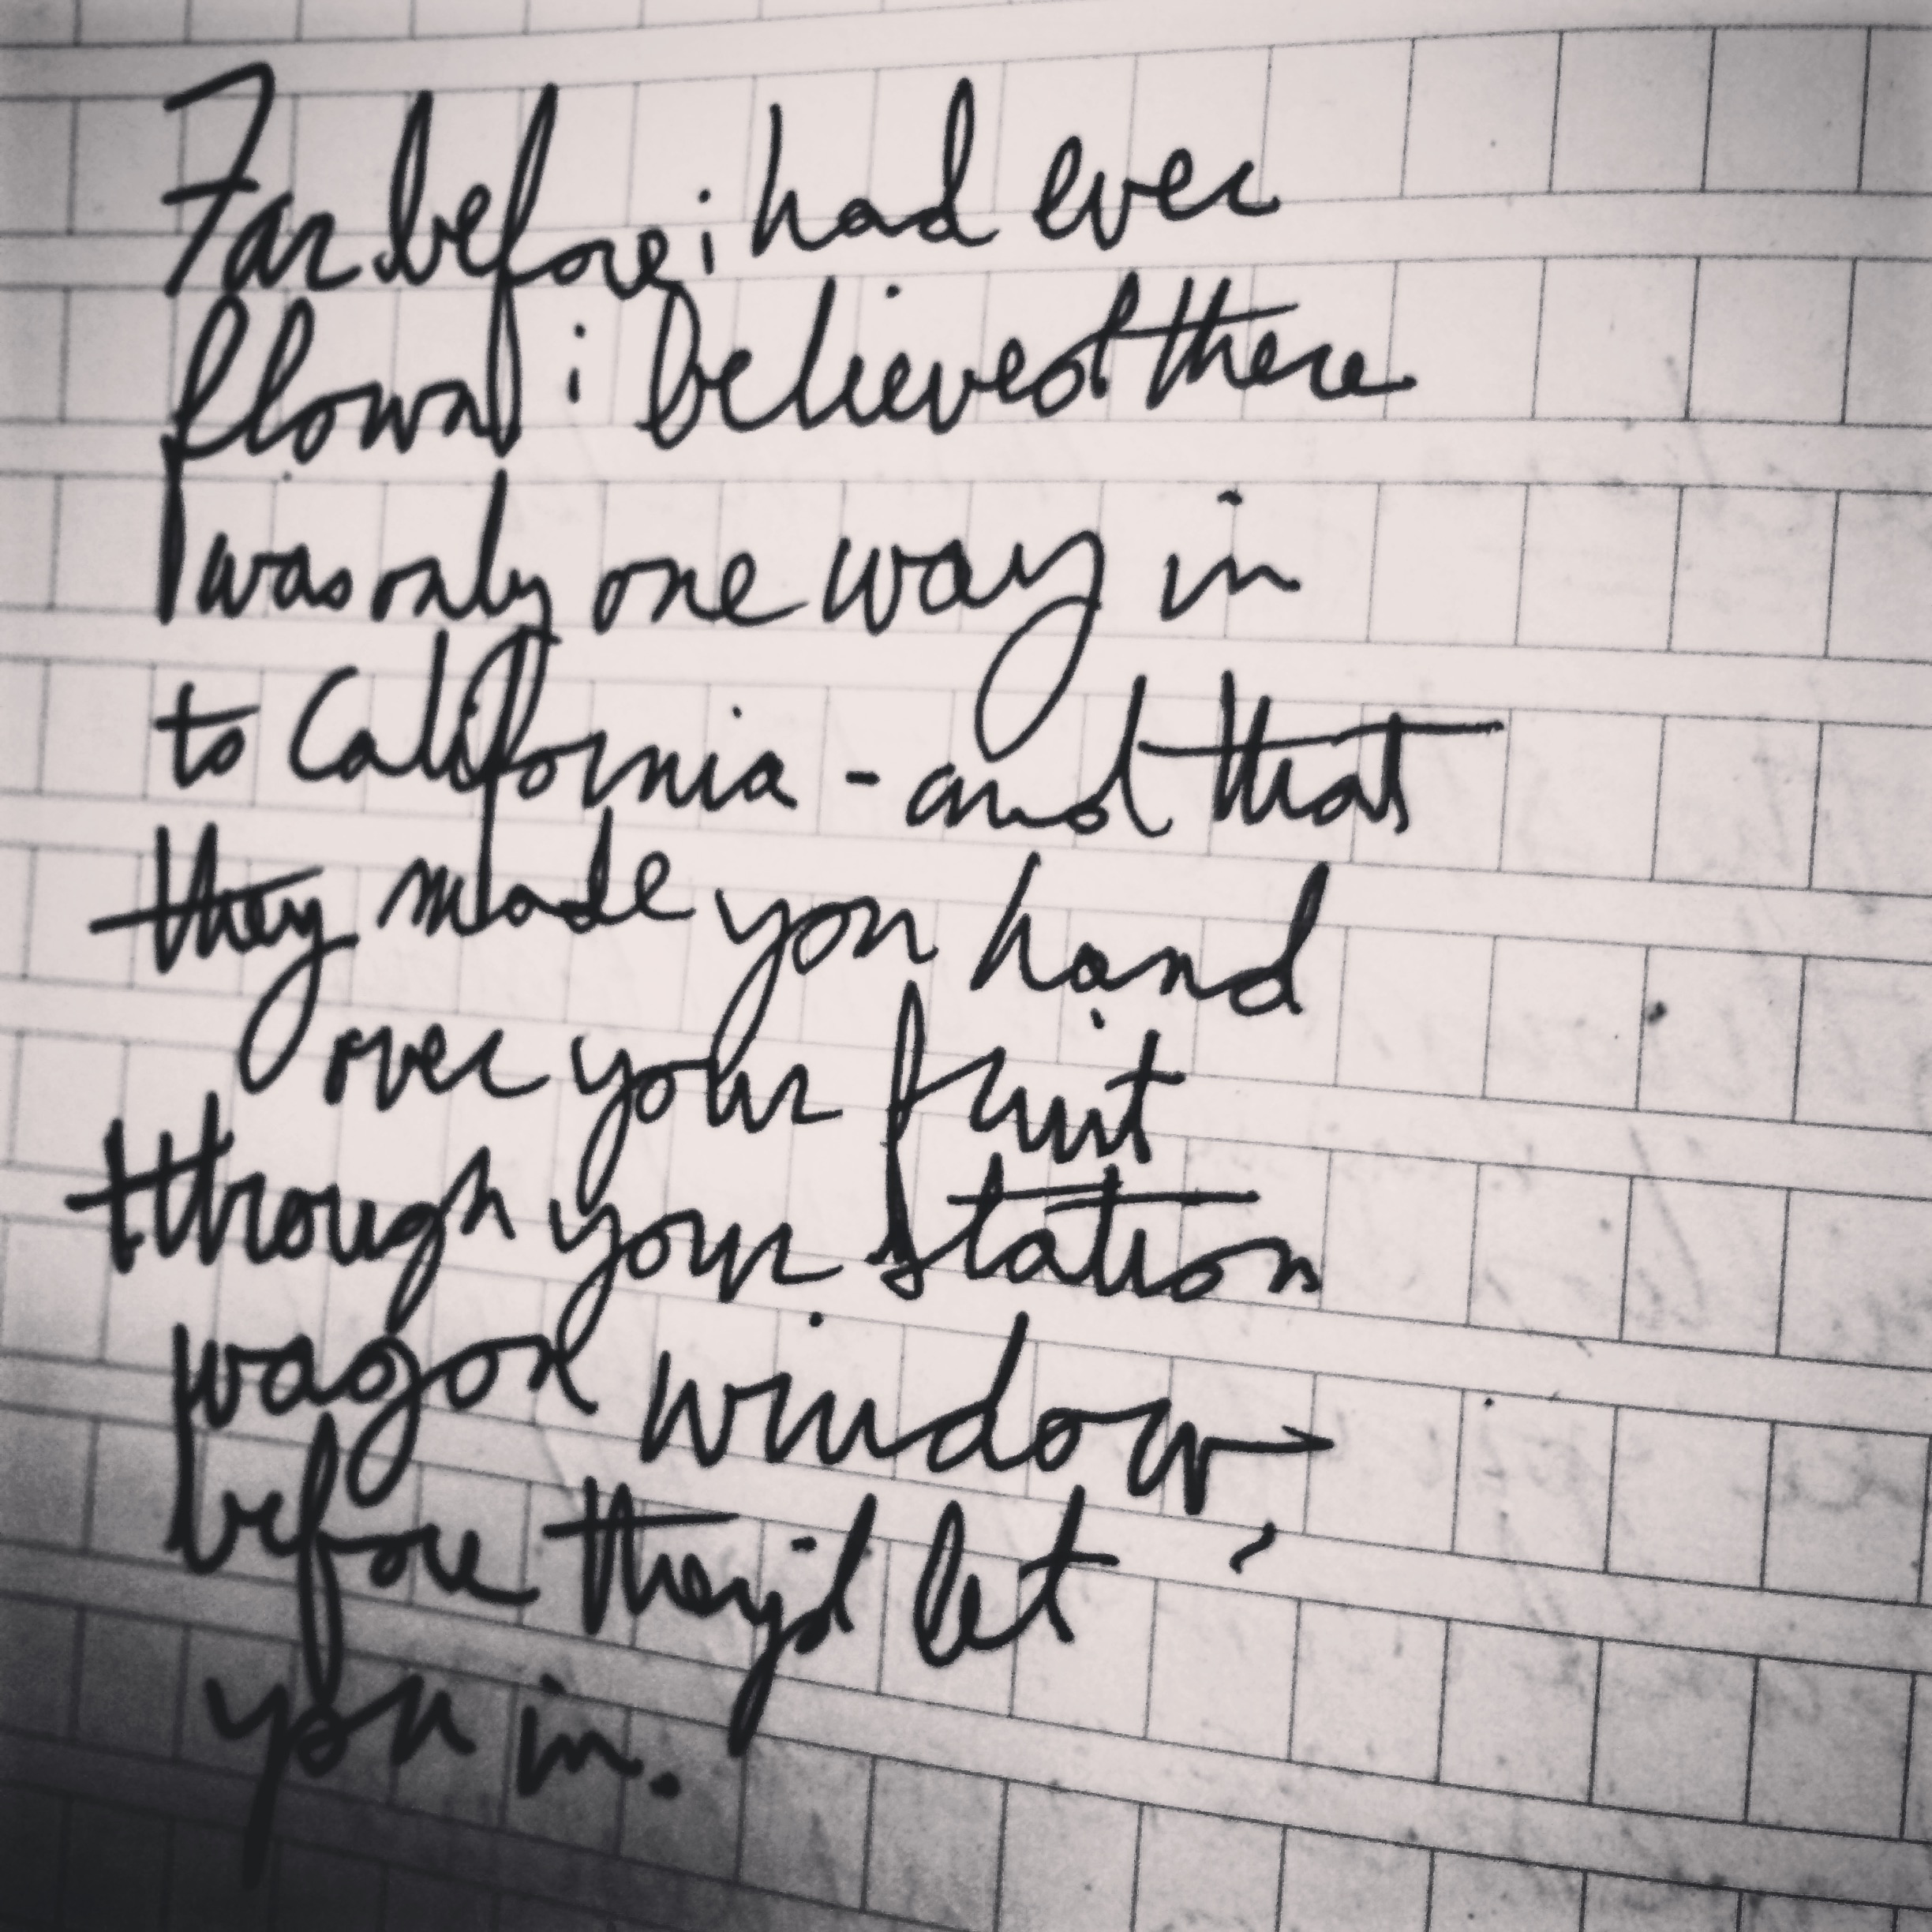 Far before i had ever
flown i believed there
was only one way in
to California - and that
they made you hand
over your fruit
through your station
wagon window
before they'd let
you in.